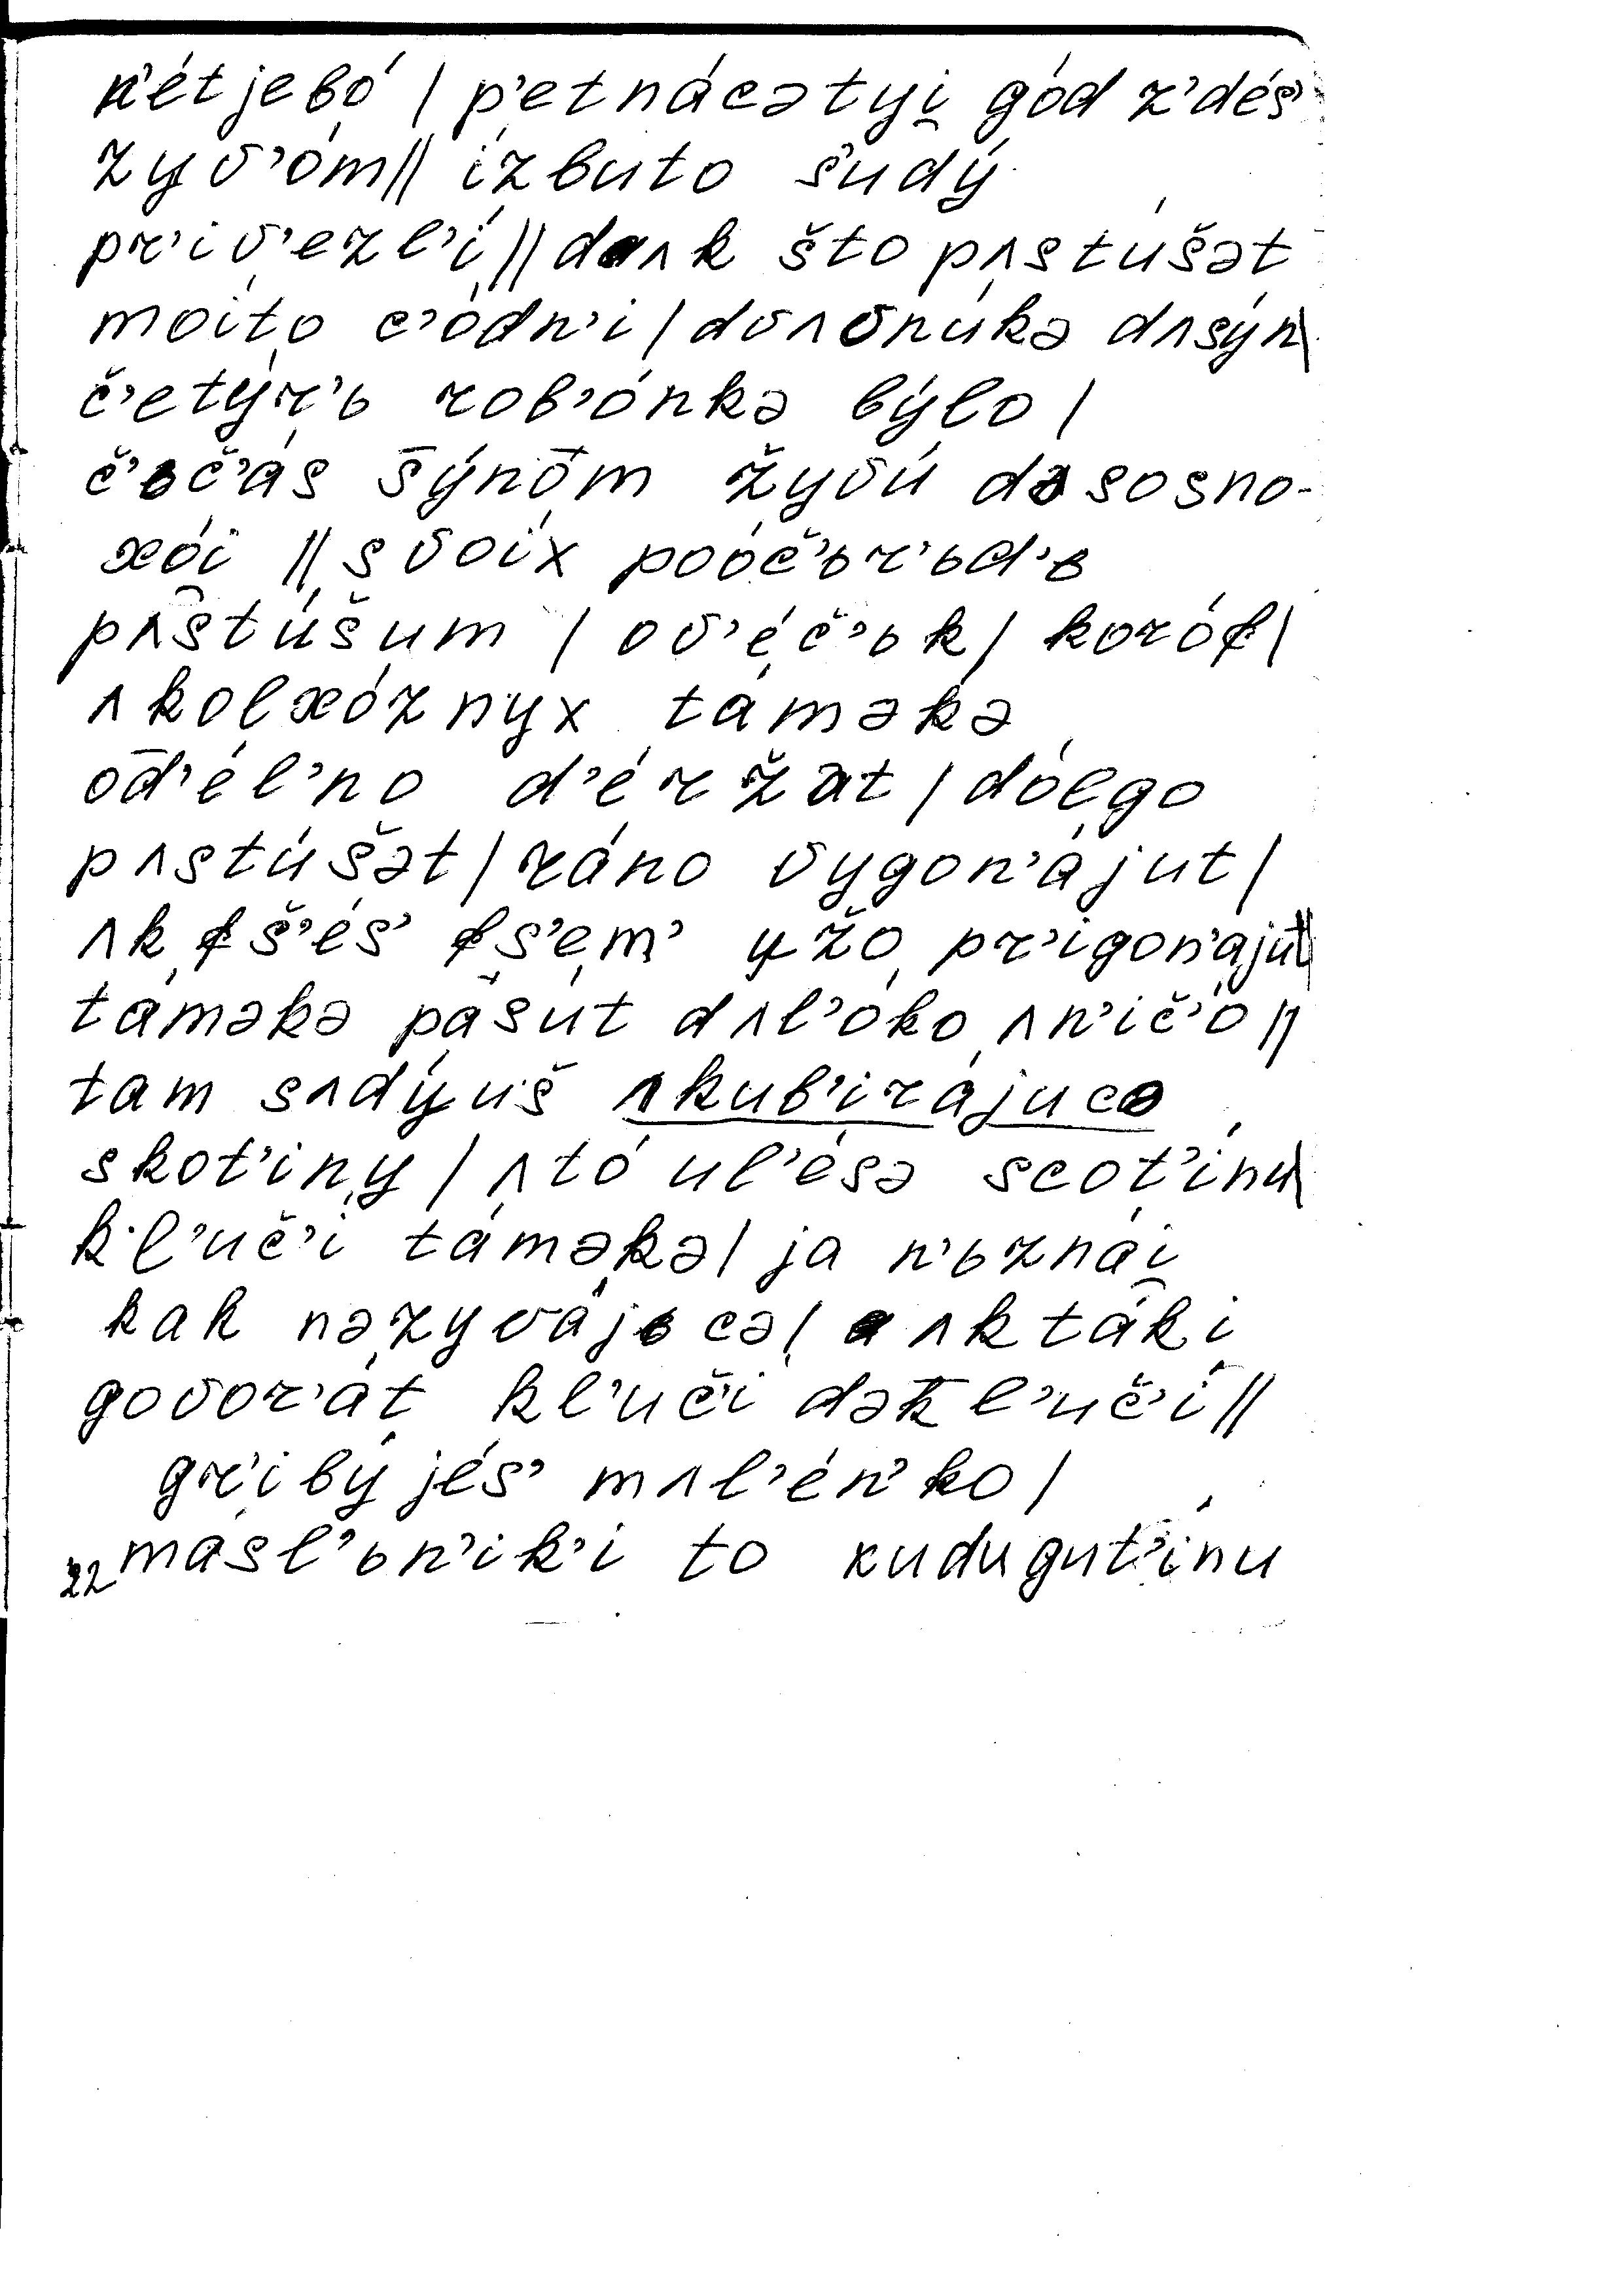 n’ét jevó / p’etnácətyi̯ gód z’dés’
žyv’óm// ízbuto s’udý
pr’iv’ezl’í// dʌk što pʌstúšət
moíto c’ódn’i / dvʌvnúkə dʌsýn/
č’etýr’ь rob’ónkə býlo /
č’ьč’ás s̄ýnōm žyvú də sosno-
xói //svoíx poóč’ьr’ьd’ь
pʌstúšum / ov’éč’ьk/ koróf/
ʌkolxóznyx táməkə
od̄’él’no d’éržat / dólgo
pʌstúšət/ ráno vygon’ájut/
ʌk fš’és’ fs’em’ užo pr’igon’ájut//
táməkə pašút dʌl’óko ʌn’ič’ó//
tam sʌdýuš ʌkub’irájucə
skot’íny / ʌtó ul’ésə scot’ínu/
kl’uč’í táməkə/ ja n’ьznái̯
kak nəzyvájьcə/ ʌk ták i
govor’át kl’uč’í dək̄l’uč’í//
gr’ibý jés’ mʌl’én’ko /
22 másl’ьn’ik’i to xudugut’ínu